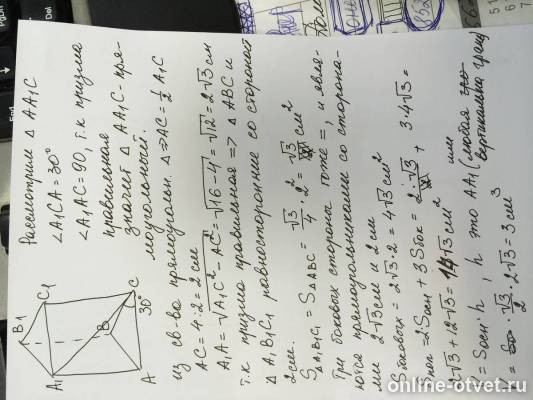 B1
C1
A1
B
C
A
30°
Рассмотрим Δ AA1C
∠A1CA = 30°
∠A1AC = 90, т.к призма
правильная
значит Δ AA1C - пря-
моугольный.
из св-ва прямоугольн. Δ => AC = ½ A1C
AC = 4 · 2 = 2 см
A1A = √A1C² - AC² = √16-4 = √12 = 2√3 см
т.к призма правильная => Δ ABC и
Δ A1B1C1 равносторонние со стороной
2 см.
SΔA1B1C1 = SΔABC = √3/4 · 2² = √3 см²
Три боковых стороны тоже =, и явля-
ются прямоугольниками со сторона-
ми 2√3 см и 2 см
Sбоковых = 2√3 · 2 = 4√3 см²
Sпол = 2·Sосн + 3Sбок = 2·√3 + 3·4√3 =
2√3 + 12√3 = 14√3 см²
V = Sосн · h, h это AA1 (любая или
вертикальная грань)
√3 · 2√3 = 3 см³
online-otvet.ru
PgUp
PgDn